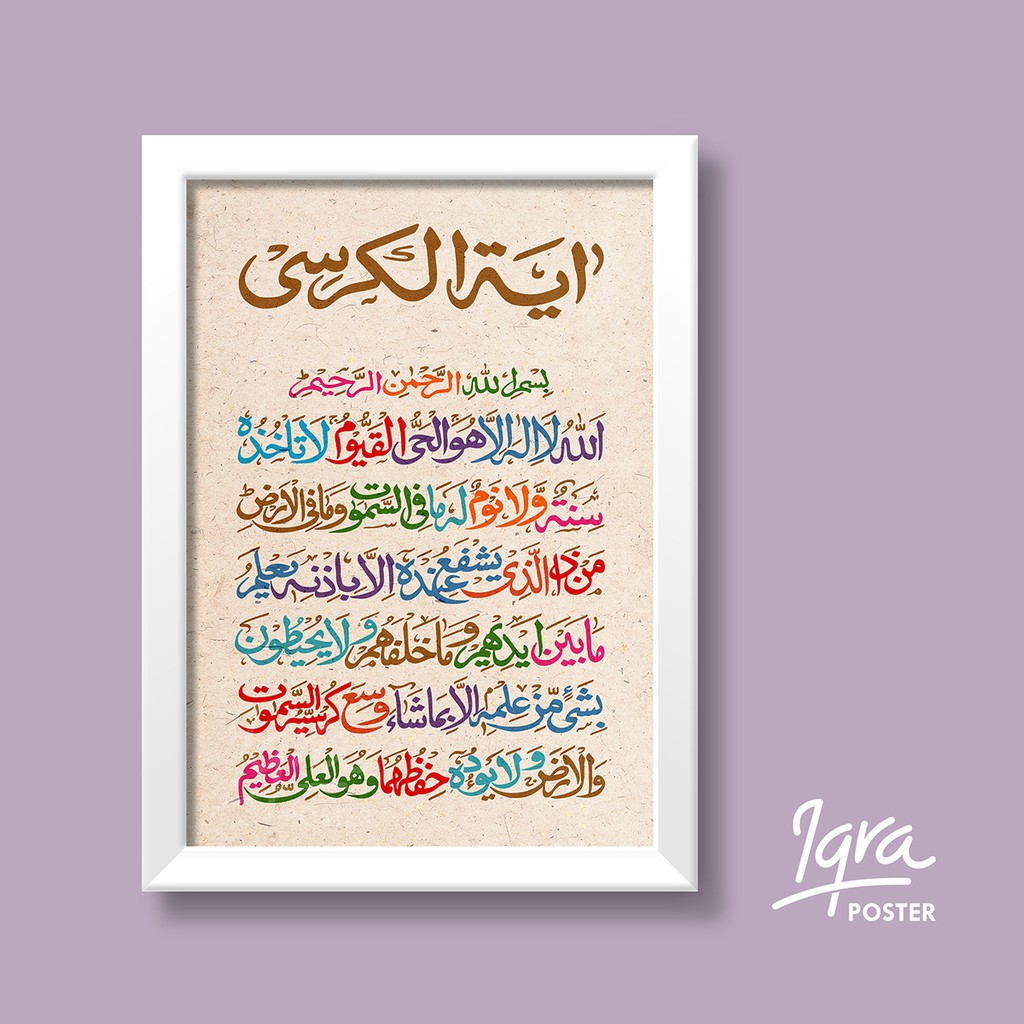 اية الكرسى
بسم الله الرحمن الرحيم
الله لا اله الا هو الحى القيوم لا تاخذه
سنة ولا نوم له ما فى السموت وما فى الارض
من ذا الذى يشفع عنده الا باذنه يعلم
ما بين ايديهم وما خلفهم ولا يحيطون
بشىء من علمه الا بما شاء وسع كرسيه السموت
والارض ولا يوده حفظهما وهو العلى العظيم
Iqra
POSTER